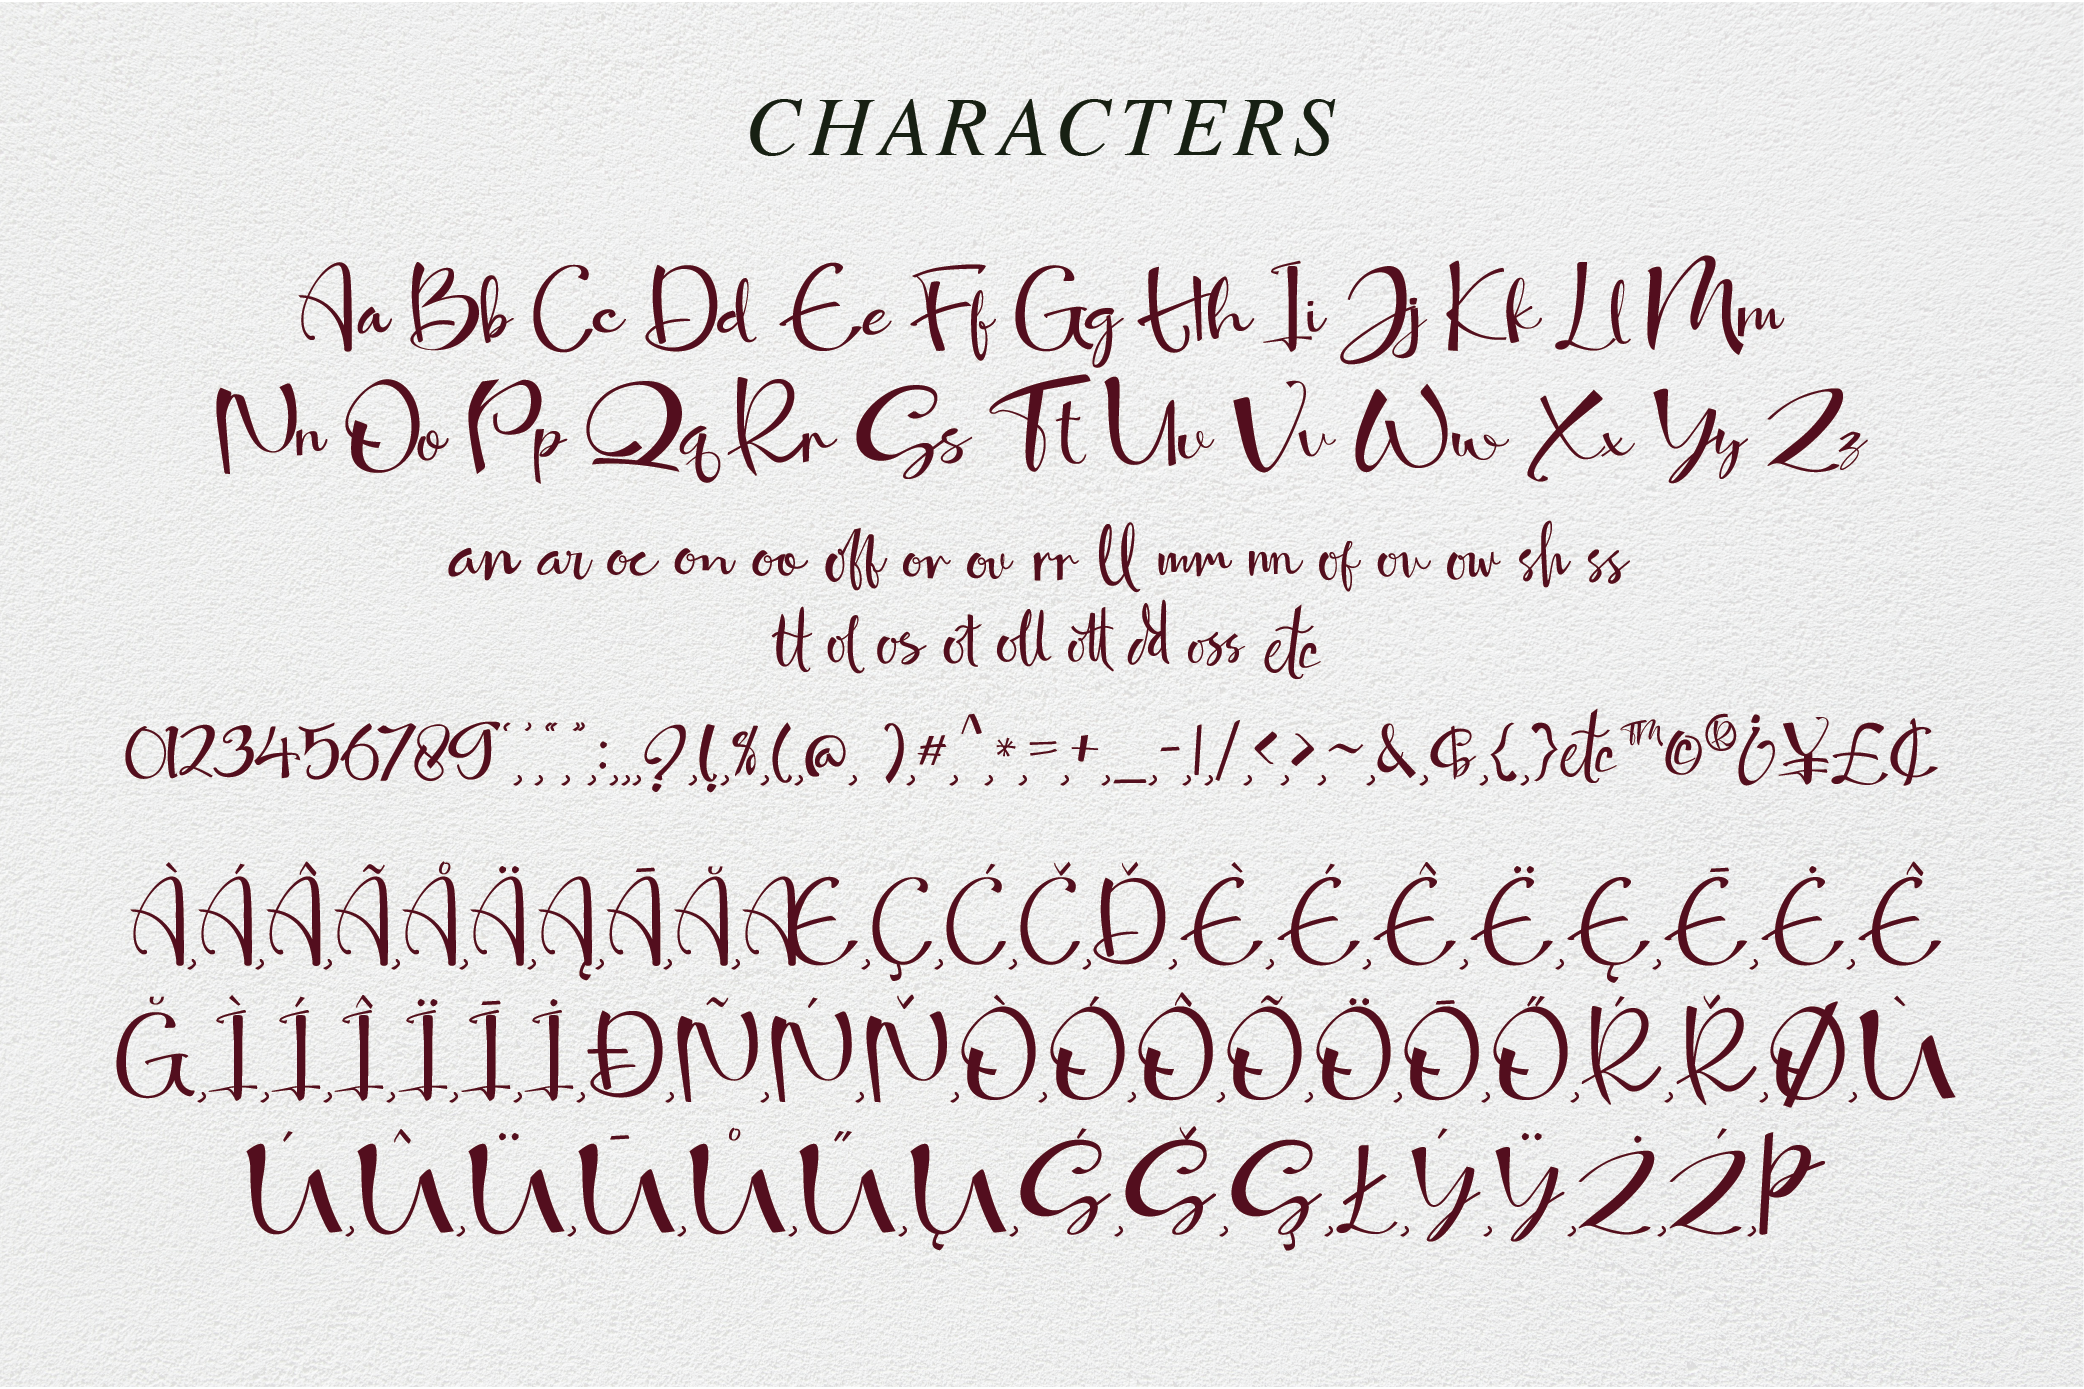 CHARACTERS
Aa Bb Cc Dd Ee Ff Gg Hh Ii Jj Kk Ll Mm
Nn Oo Pp Qq Rr Ss Tt Uu Vv Ww Xx Yy Zz
an ar oc on oo off or ov rr ll mm nn of ou ow sh ss
tt ol os ot oll ott dd oss etc
0123456789‘,’,“,”,:,.,,,?,!,%,(,@, ),#,^,*,=,+,_,-,|,/,<,>,~,&,$,{,}etc™©®¿¥£¢
À,Á,Â,Ã,Å,Ä,Ą,Ā,Ă,Æ,Ç,Ć,Č,Ď,È,É,Ê,Ë,Ę,Ē,Ė,Ê
Ğ,Ì,Í,Î,Ï,Ī,İ,Đ,Ñ,Ń,Ň,Ò,Ó,Ô,Õ,Ö,Ō,Ő,Ŕ,Ř,Ø,Ù
Ú,Û,Ü,Ū,Ů,Ű,Ų,Ś,Š,Ş,Ł,Ý,Ÿ,Ż,Ź,Þ